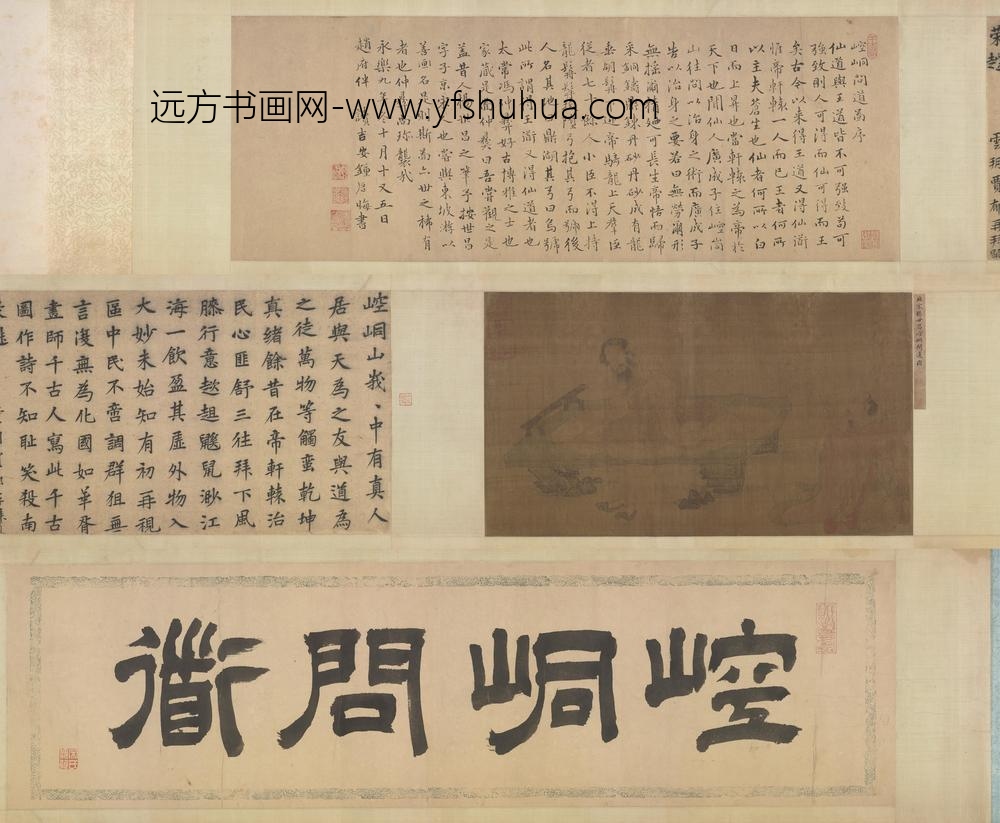 远方书画网-www.yfshuhua.com
崆峒問道啚序
仙道與王道皆不可強致苟可
強致則人可得而仙可得而王
矣古今以來得王道又得仙術
惟帝軒轅一人而已王者何所
以主夫蒼生也仙者何所以白
日而上昇也當軒轅之為帝於
天下也聞仙人廣成子住崆峒
山往問以治身之術而廣成子
告以治身之要若曰無勞爾形
無搖爾廼可長生帝悟而歸
采銅鑄鼎鍊丹砂丹砂成有龍
垂胡髯迎帝騎龍上天羣臣
從者七十餘人小臣不得上持
龍髯抱其弓而號後
人名其地鼎湖其弓曰烏號
此所謂王術又得仙道者也
太常馮彛好古博雅之士也
家藏是仲彛曰吾嘗觀之是
蓋昔人楊世昌之筆予按世昌
字子京也嘗與東坡游以
善画名斯啚六世之稀有
者也仲珎襲哉
永樂九年十月十又五日
趙府伴吉安鍾啓晦書
崆峒山峩、中有真人
居與天為之友與道為
之徒萬物等觸蛮乾坤
真緒餘昔在帝軒轅治
民心匪舒三往拜下風
膝行意趑趄渺江
海一飲盈其虛外物入
大妙未始知有初再視
區中民不啻調群狙無
言復無為化國如華胥
畫師千古人寫此千古
圖作詩不知耻笑殺南
崆峒問衟